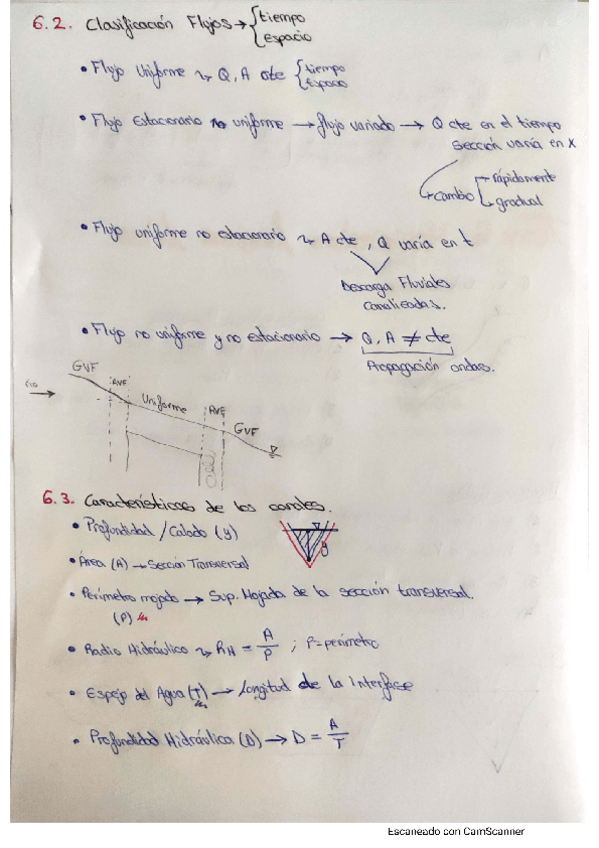 6.2. Clasificación Flujos → { tiempo
espacio
• Flujo Uniforme ⤳ Q, A cte { tiempo
espacio
• Flujo Estacionario no uniforme → flujo variado → Q cte en el tiempo
Sección varía en X
cambio rápidamente
gradual
• Flujo uniforme no estacionario ⤳ A cte, Q varía en t
Descarga Fluviales
Canalizadas.
• Flujo no uniforme y no estacionario → Q, A ≠ cte
Propagación ondas.
GVF
RVF
Uniforme
RVF
GVF
6.3. Características de los canales.
• Profundidad / Calado (y)
y
• Área (A) → Sección Transversal
• Perímetro mojado → Sup. Mojada de la sección transversal.
(P) m
• Radio Hidráulico ⤳ RH = A/P ; P = perímetro
• Espejo del Agua (T) → Longitud de la Interfase
• Profundidad Hidráulica (D) → D = A/T
Escaneado con CamScanner